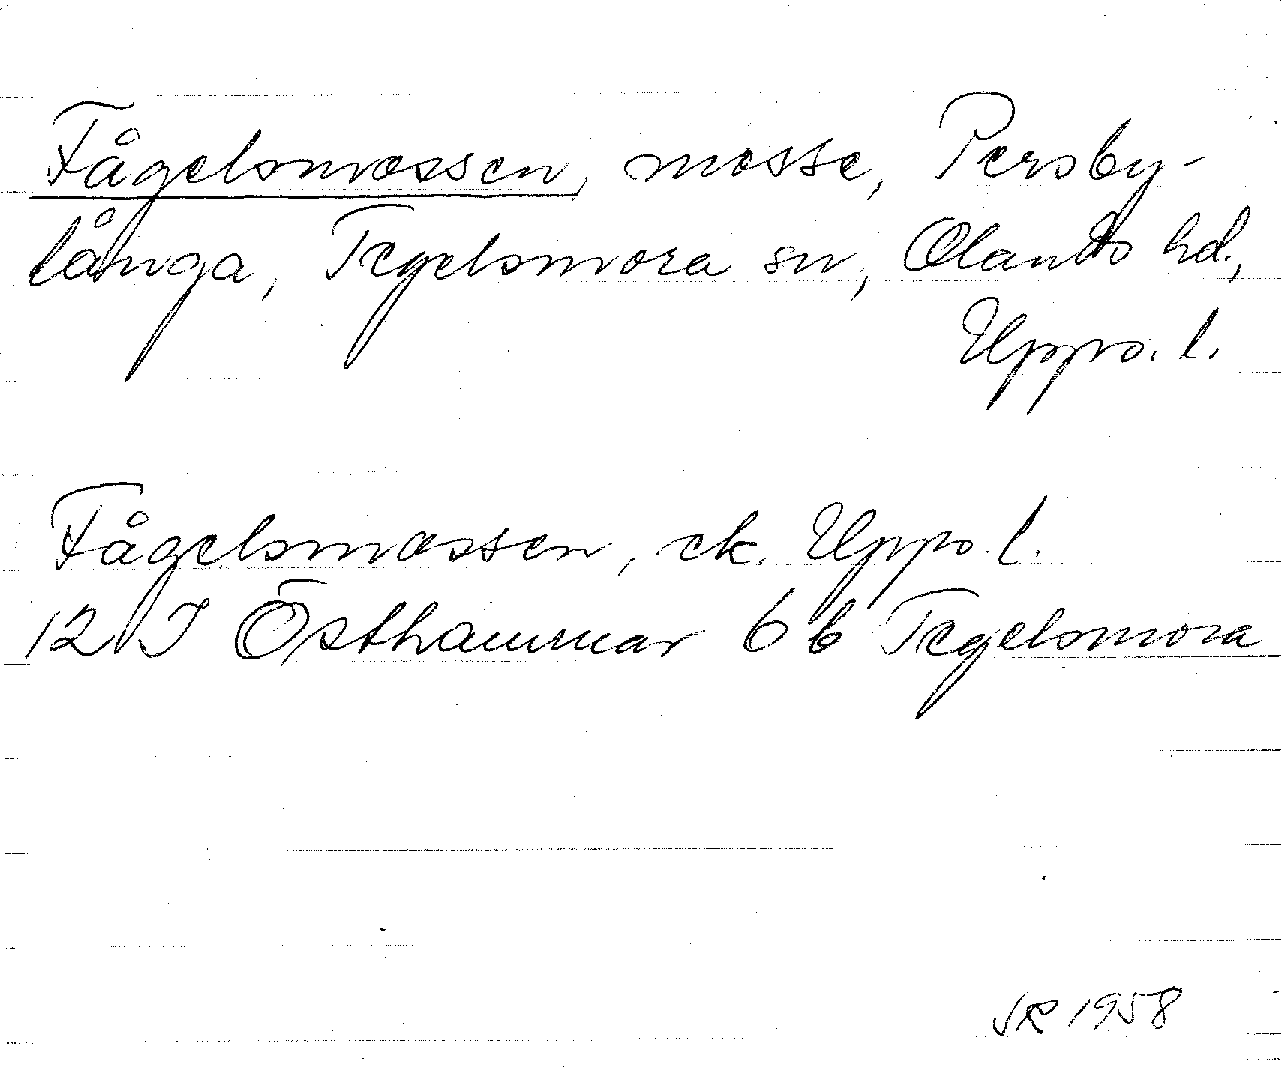 Fågelsmossen, mosse, Persby-
långa, Tegelsmora sn, Olands hd.,
Upps. l.
Fågelsmossen, ek. Upps. l.
12 I Östhammar 6 b Tegelsmora
SR 1958